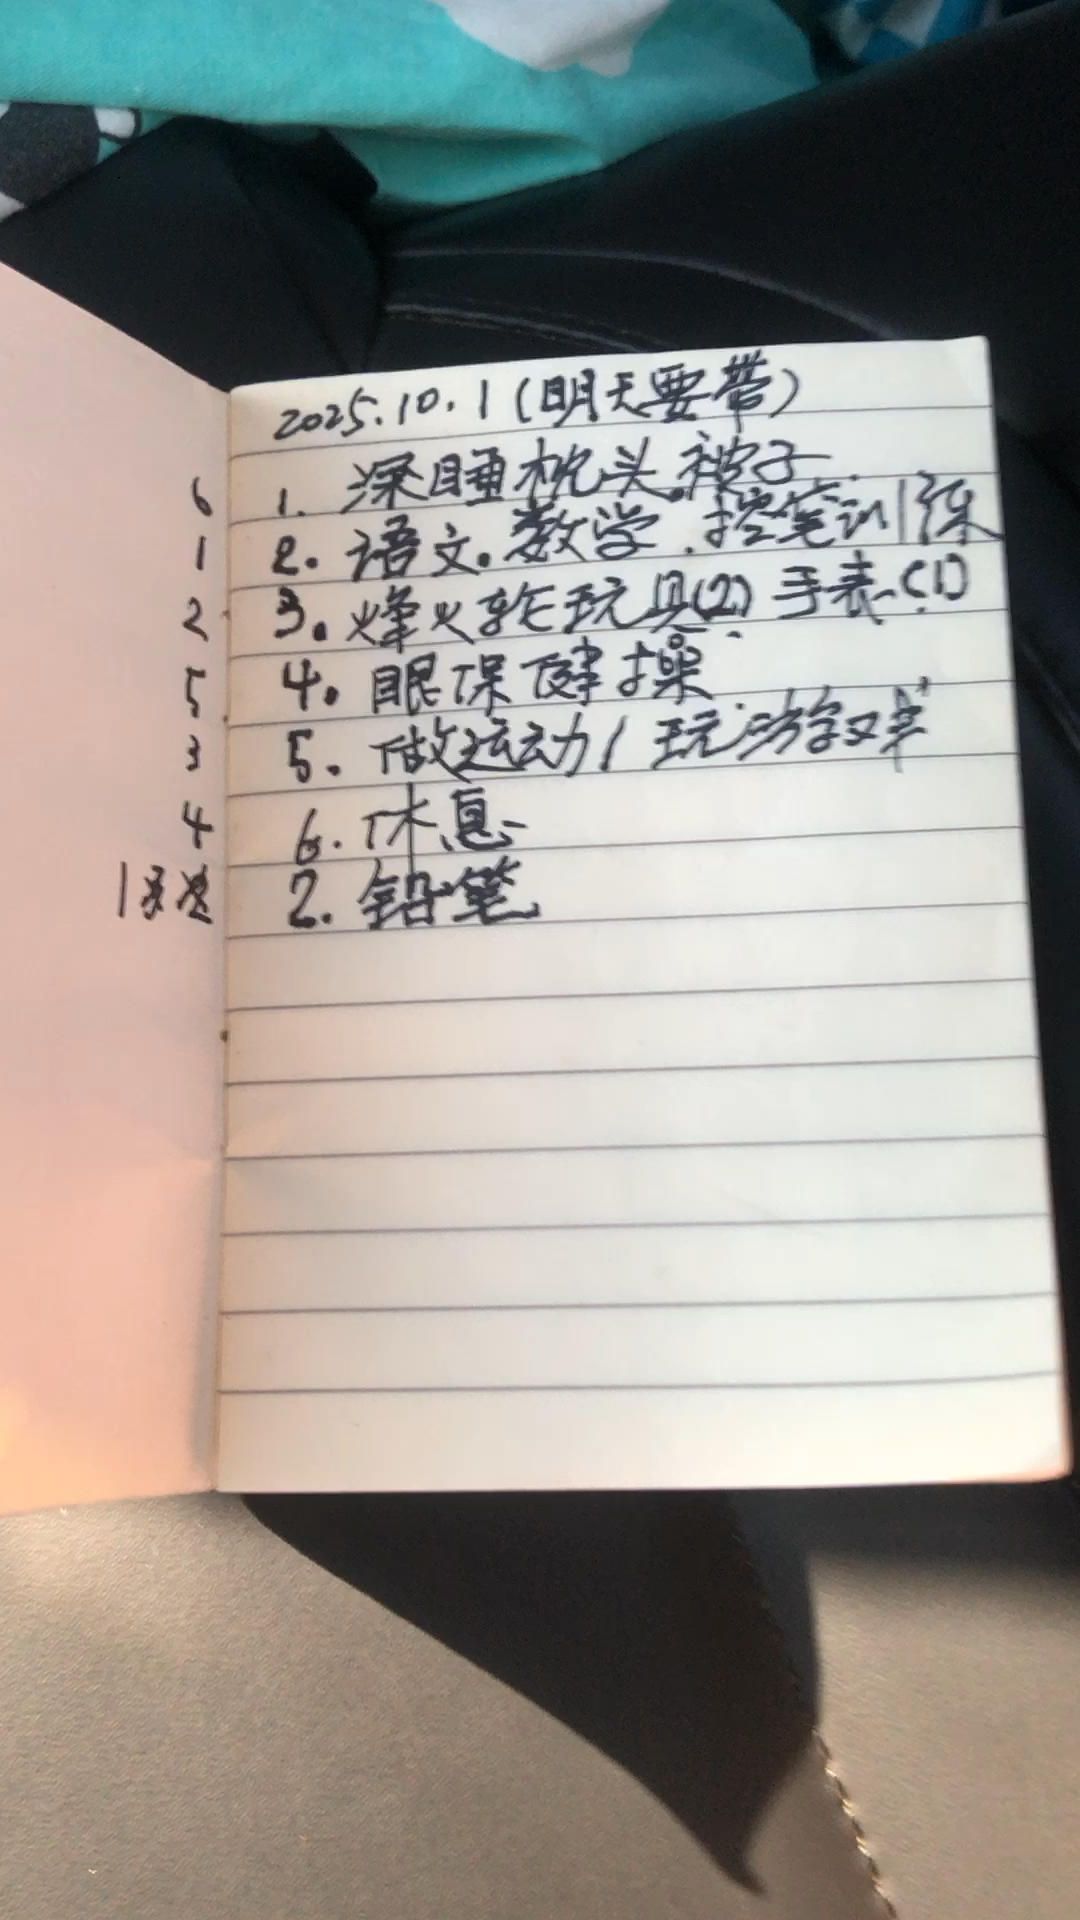 2025.10.1(明天要带)
6 1. 深睡枕头.被子
1 2. 语文。数学.控笔训练
2 3. 烽火轮玩具(2) 手表(1)
5 4. 眼保健操
3 5. 做运动/玩游戏
4 6. 休息
1 7. 铅笔